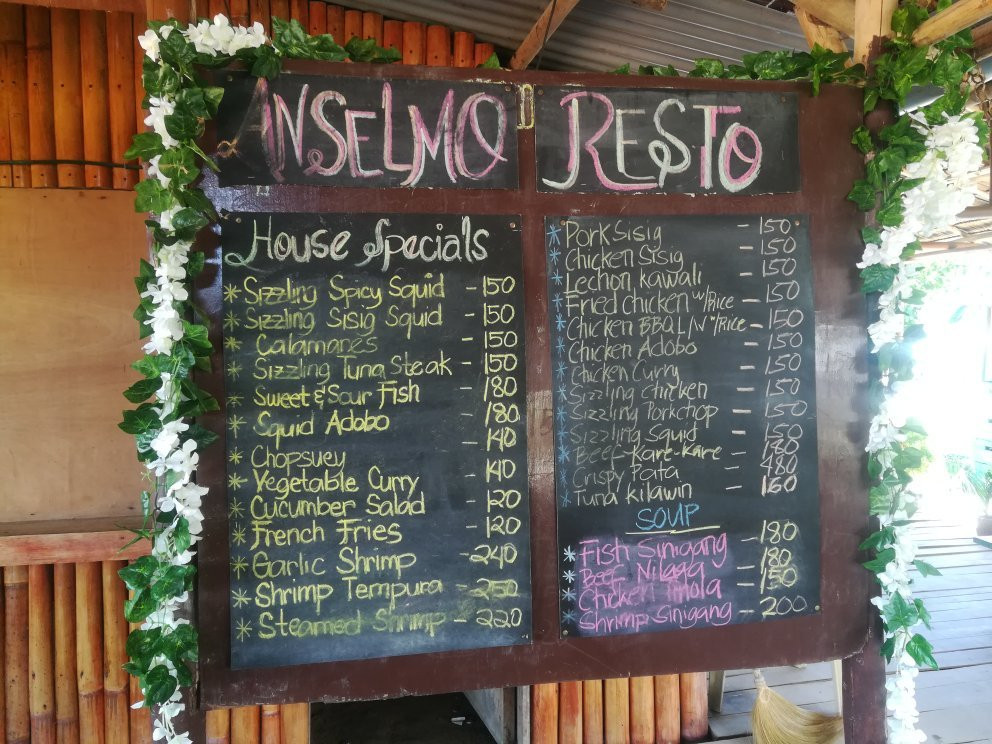 ANSELMO RESTO
House Specials
* Sizzling Spicy Squid - 150
* Sizzling Sisig Squid - 150
* Calamares - 150
* Sizzling Tuna Steak - 150
* Sweet & Sour Fish - 180
* Squid Adobo - 180
* Chopsuey - 140
* Vegetable Curry - 140
* Cucumber Salad - 120
* French Fries - 120
* Garlic Shrimp - 240
* Shrimp Tempura - 250
* Steamed Shrimp - 220
* Pork Sisig - 150
* Chicken Sisig - 150
* Lechon Kawali - 150
* Fried Chicken w/Rice - 150
* Chicken BBQ L/N w/Rice - 150
* Chicken Adobo - 150
* Chicken Curry - 150
* Sizzling Chicken - 150
* Sizzling Porkchop - 150
* Sizzling Squid - 150
* Beef Kare-Kare - 180
* Crispy Pata - 480
* Tuna Kilawin - 160
SOUP
* Fish Sinigang - 180
* Beef Nilaga - 180
* Chicken Tinola - 150
* Shrimp Sinigang - 200